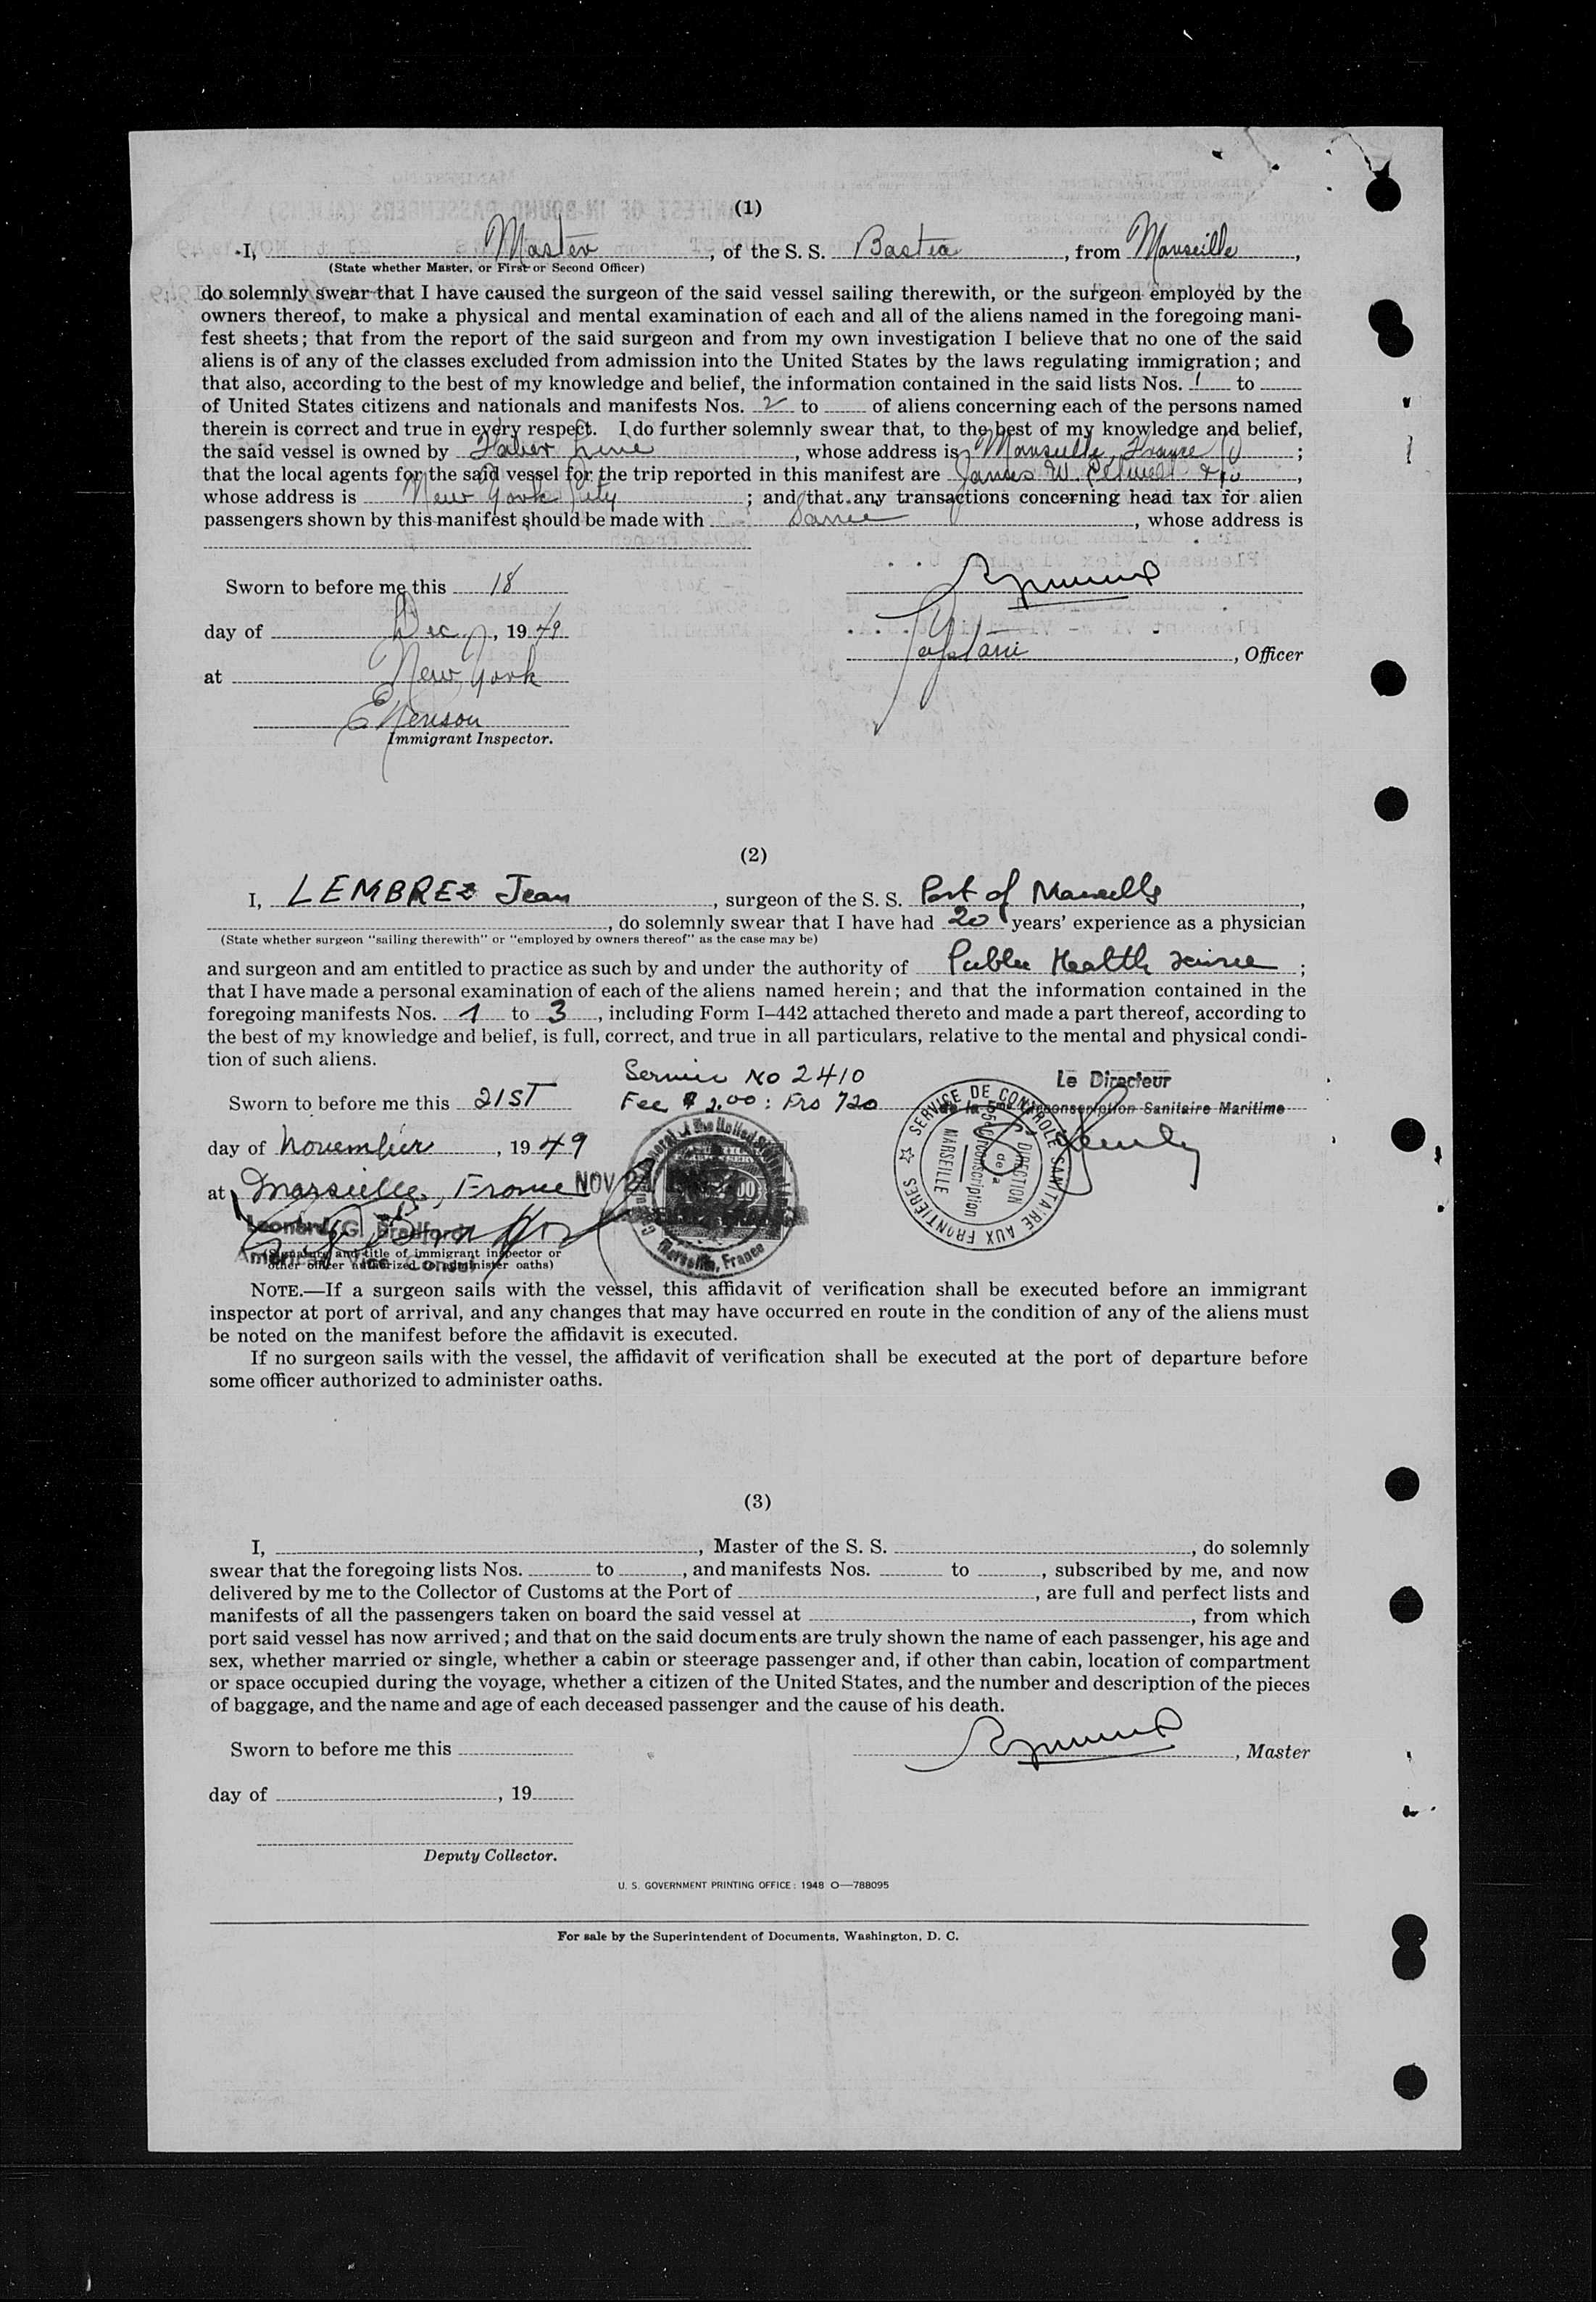 (1)
I, Master, of the S. S. Bastia, from Marseille,
(State whether Master, or First or Second Officer)
do solemnly swear that I have caused the surgeon of the said vessel sailing therewith, or the surgeon employed by the
owners thereof, to make a physical and mental examination of each and all of the aliens named in the foregoing mani-
fest sheets; that from the report of the said surgeon and from my own investigation I believe that no one of the said
aliens is of any of the classes excluded from admission into the United States by the laws regulating immigration; and
that also, according to the best of my knowledge and belief, the information contained in the said lists Nos. 1 to
of United States citizens and nationals and manifests Nos. 2 to of aliens concerning each of the persons named
therein is correct and true in every respect. I do further solemnly swear that, to the best of my knowledge and belief,
the said vessel is owned by Faber Line, whose address is Marseille, France;
that the local agents for the said vessel for the trip reported in this manifest are James W. Elwell & Co,
whose address is New York City; and that any transactions concerning head tax for alien
passengers shown by this manifest should be made with Same, whose address is
Sworn to before me this 18
day of Dec., 1949
Captain, Officer
at New York
Immigrant Inspector.
(2)
I, LEMBREZ Jean, surgeon of the S. S. Port of Marseille,
, do solemnly swear that I have had 20 years' experience as a physician
(State whether surgeon "sailing therewith" or "employed by owners thereof" as the case may be)
and surgeon and am entitled to practice as such by and under the authority of Public Health;
that I have made a personal examination of each of the aliens named herein; and that the information contained in the
foregoing manifests Nos. 1 to 3, including Form I–442 attached thereto and made a part thereof, according to
the best of my knowledge and belief, is full, correct, and true in all particulars, relative to the mental and physical condi-
tion of such aliens.
Service No 2410
Le Directeur
Sworn to before me this 21ST
Fee $ 2.00 : Frs 720
de la 5me Circonscription Sanitaire Maritime
SERVICE DE CONTROLE SANITAIRE AUX FRONTIERES
DIRECTION
de la
5e Circonscription
MARSEILLE
day of November, 1949
at Marseille, France NOV 21
Leonard G. Bradford
American Vice Consul
Marseille, France
(Signature and title of immigrant inspector or
other officer authorized to administer oaths)
NOTE.—If a surgeon sails with the vessel, this affidavit of verification shall be executed before an immigrant
inspector at port of arrival, and any changes that may have occurred en route in the condition of any of the aliens must
be noted on the manifest before the affidavit is executed.
If no surgeon sails with the vessel, the affidavit of verification shall be executed at the port of departure before
some officer authorized to administer oaths.
(3)
I, , Master of the S. S. , do solemnly
swear that the foregoing lists Nos. to , and manifests Nos. to , subscribed by me, and now
delivered by me to the Collector of Customs at the Port of , are full and perfect lists and
manifests of all the passengers taken on board the said vessel at , from which
port said vessel has now arrived; and that on the said documents are truly shown the name of each passenger, his age and
sex, whether married or single, whether a cabin or steerage passenger and, if other than cabin, location of compartment
or space occupied during the voyage, whether a citizen of the United States, and the number and description of the pieces
of baggage, and the name and age of each deceased passenger and the cause of his death.
Sworn to before me this
, Master
day of , 19
Deputy Collector.
U. S. GOVERNMENT PRINTING OFFICE: 1948 O—788095
For sale by the Superintendent of Documents, Washington, D. C.